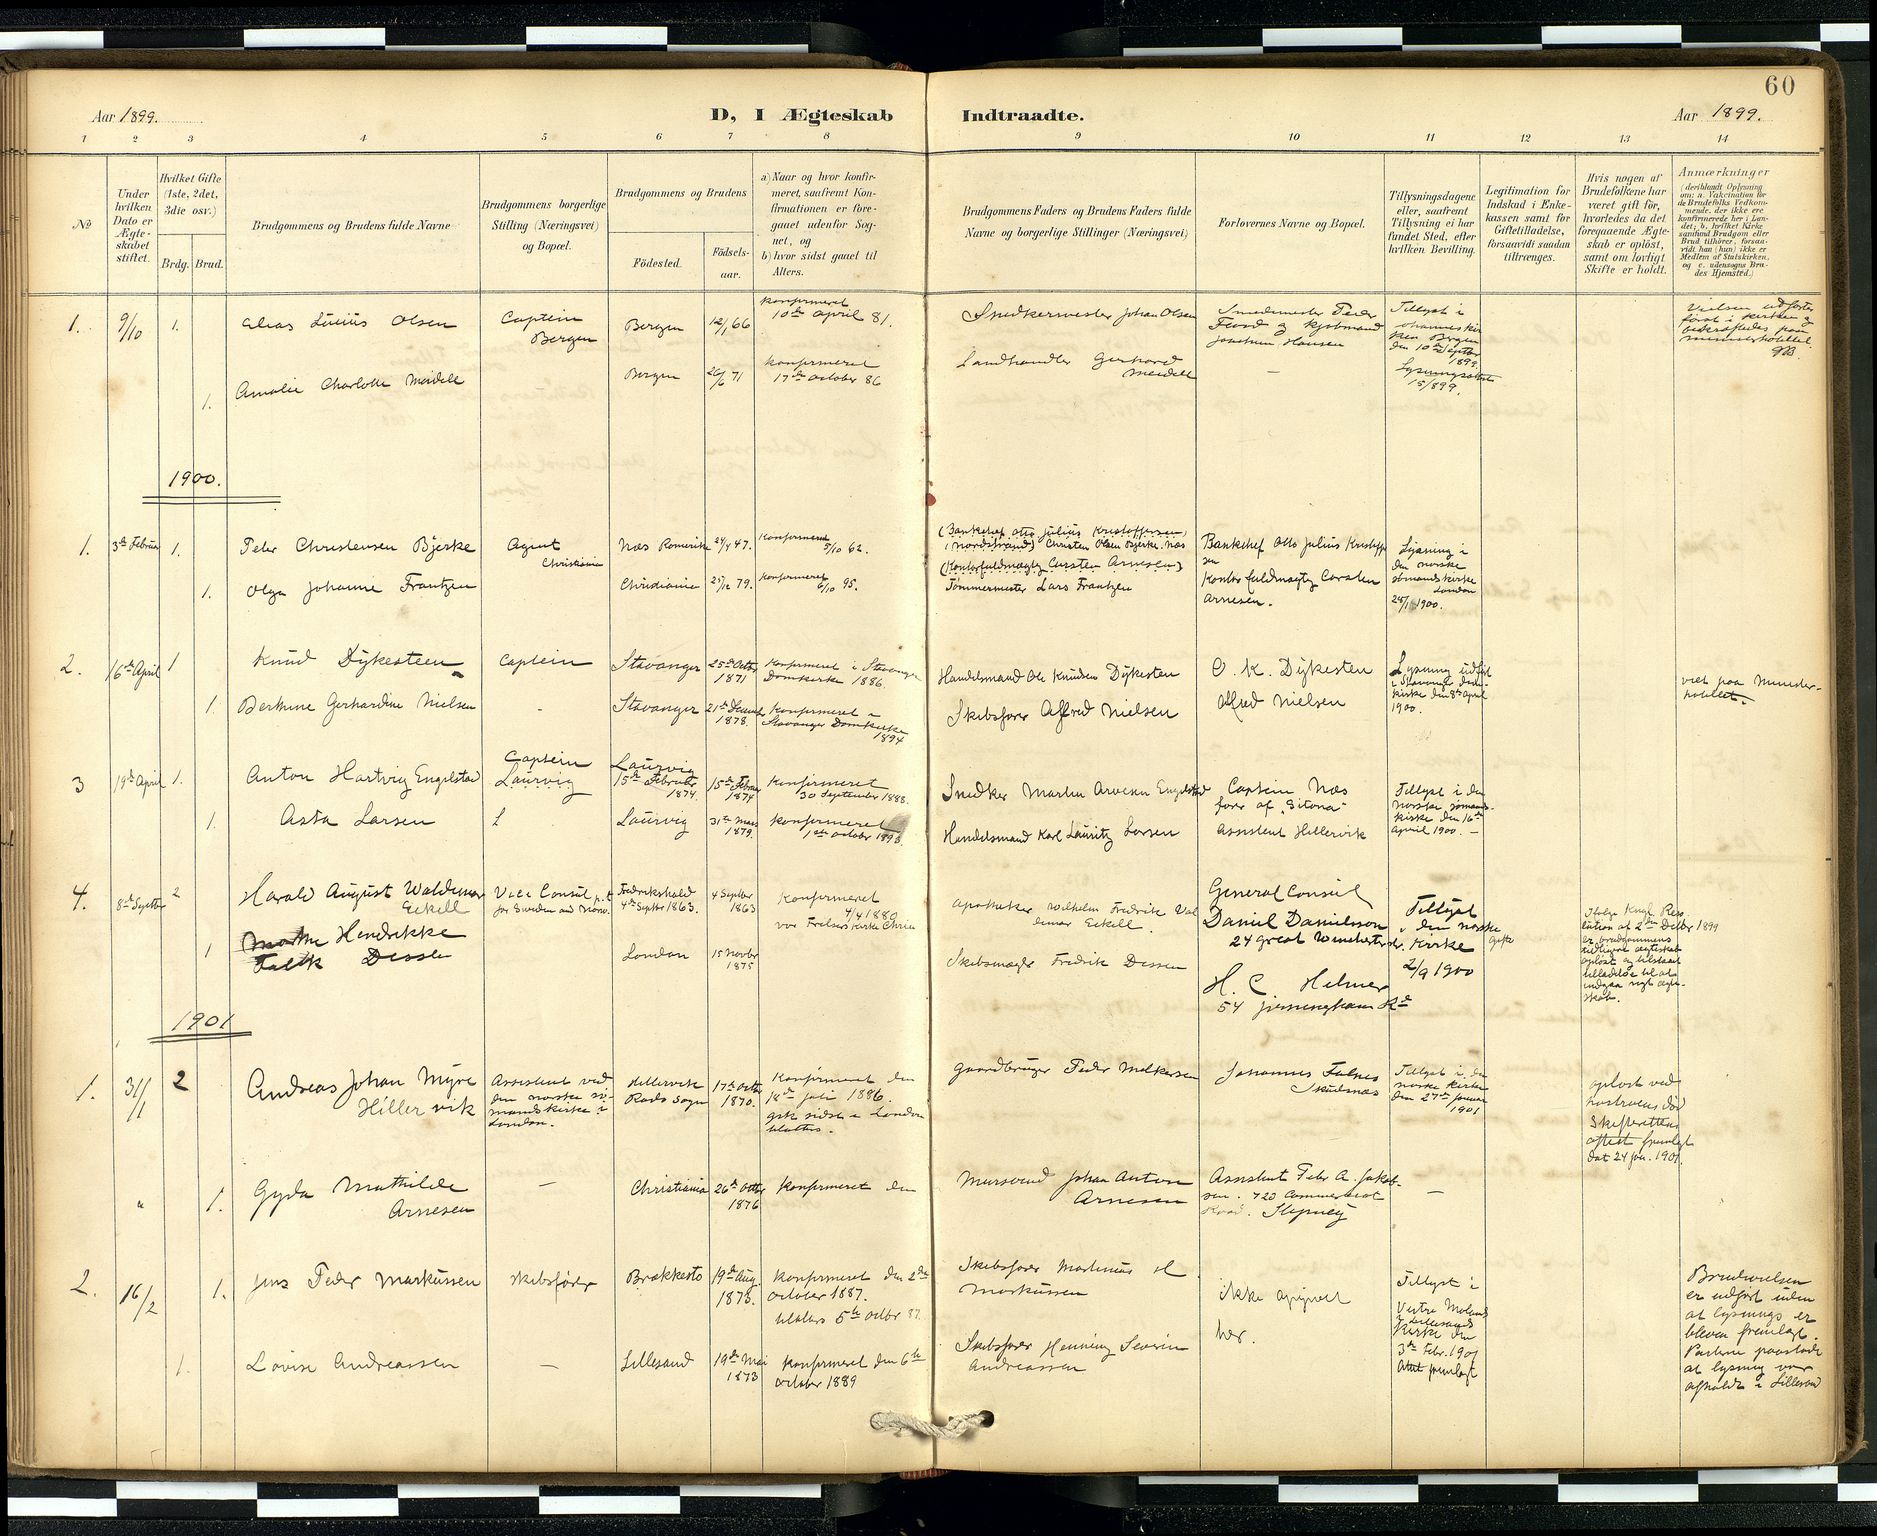 60
Aar 1899.
D, I Ægteskab
Indtraadte.
Aar 1899.
1 2 3 4 5 6 7 8 9 10 11 12 13 14
No
Under
hvilken
Dato er
Ægte-
skabet
stiftet.
Hvilket Gifte
(1ste, 2det,
3die osv.)
Brdg. Brud.
Brudgommens og Brudens fulde Navne
Brudgommens borgerlige
Stilling (Næringsvei)
og Bopæl.
Brudgommens og Brudens
Fødested.
Fødsels-
aar.
a) Naar og hvor konfir-
meret, saafremt Kon-
firmationen er fore-
gaaet udenfor Sog-
net, og
b) hvor sidst gaaet til
Alters.
Brudgommens Faders og Brudens Faders fulde
Navne og borgerlige Stillinger (Næringsvei)
Forlovernes Navne og Bopæl.
Tillysningsdagene
eller, saafremt
Tillysning ei har
fundet Sted, efter
hvilken Bevilling.
Legitimation for
Indskud i Enke-
kassen samt for
Giftetilladelse,
forsaavidt saadan
tiltrænges.
Hvis nogen af
Brudefolkene har
været gift før,
hvorledes da det
foregaaende Ægte-
skab er opløst,
samt om lovligt
Skifte er holdt.
Anmærkninger
(deriblandt Oplysning
om: a. Vakcination for
de Brudefolks Vedkom-
mende, der ikke ere
konfirmerede her i Lan-
det; b. hvilket Kirke
samfund Brudgom eller
Brud tilhører, forsaa-
vidt han (hun) ikke er
Medlem af Statskirken,
og c. udensogns Bru-
des Hjemsted.)
1. 9/10 1.
Olsen
Captein
Bergen
Bergen
12/1 66
konfirmeret
10de april 81.
Snedkermester Johan Olsen
Snedmester Peder
kjøbmand
Hansen
Tillyst i
Johanneskir
ken Bergen
den 10de Septbr
1899.
Lysningsattest
15/899.
Vielsen udførtes
først i kirken og
bekræftedes paa
ministerhotellet.
1.
Amalie Charlotte Meidell
Bergen
26/6 71
konfirmeret
17de october 86
Landhandler Gerhard
Meidell
—
1900.
1. 3de Februar 1.
Peder Christensen Bjerke
Agent
Christiania
Næs Romerike
47.
konfirmeret
5/10 62.
(Bankchef Otto Julius Kristoffersen,
i Nordstrand) Christen Olsen Bjerke. Næs
Bankchef Otto Julius Kristoffer
sen
Lysning i
den norske
sømandskirke
London
25/1 1900.
1.
Olga Johanne Frantzen
Christiania
25/12 79.
konfirmeret
6/10 95.
(Kontorfuldmægtig Carsten Arnesen)
Tømmermester Lars Frantzen
Kontorfuldmægtig Carsten
Arnesen.
2. 16de April 1
Knud Dykesteen
Captein
Stavanger
25de Octbr
1871
Konfirmeret i Stavanger
Domkirke 1886.
Handelsmand Ole Knudsen Dykesten
O. K. Dykesten
Lysning udført
i Stavanger dom-
kirke den 8de april
1900.
viet paa Minister-
hotellet.
1.
Berthine Gerhardine Nielsen
-
Stavanger
21de
1878.
Konfirmeret i
Stavanger Domkirke
1894
Skibsfører Alfred Nielsen
Alfred Nielsen
3 19de April 1.
Anton Hartvig Engelstad
Captein
Laurvig
Laurvig
15de Februar
1874.
15de Februar
1874
konfirmeret
30 September 1888.
Snedker Martin Engelstad
Captein Næs
fører af "Sitona"
Tillyst i den
norske sømands-
kirke den 16de
April 1900. -
1.
Asta Larsen
Laurvig
31te Mars
1879.
konfirmeret
1ste october 1893.
Handelsmand Karl Lauritz Larsen
Assistent Hillervik
4. 8de Septbr 2
Harald August Waldemar
Eckell
Vice Consul p.t
for Sweden and Norw.
Fredrikshald
4de Septbr 1863.
4 Septbr
1863
Konfirmeret
4/4 1880
vor Frelsers Kirke Chria
Apotheker Wilhelm Fredrik Val
demar Eckell.
General Consul
Daniel Danielsson
24 Great Winchester str.
Tillyst
i den norske
Kirke
2/9 1900
Ifølge Kngl. Reso
lution af 2den Decbr 1899
er brudgommens
tidligere ægteskab
opløst og tilstaaet
tilladelse til at
indgaa nyt ægte-
skab.
1
Hendrikke
London
15 Novbr
1875
Skibsmægler Fredrik
H. C.
54 Jerningham Rd
1901
1. 31/1 2
Andreas Johan Myre
Hillervik
Assistent ved
den norske sø-
mandskirke i
London.
Hillervik
Sogn
17de Octbr
1870.
Konfirmeret den
18de juli 1886.
gik sidst i London
til alters.
Gaardbruger Peder Melkersen
Johannes Falnes
Skudesnæs
Tillyst i den
norske kirke
den 27de januar
1901
opløst ved
hustruens død
Skifterettens
attest fremlagt
dat 24 jan. 1901.
" 1.
Gyda Mathilde
Arnesen
—
Christiania
26de Octbr
1876
konfirmeret den
Mursvend Johan Anton
Arnesen
Assistent Peter A. Jakob-
sen. 720 Commercial
Road. Stepney
—
2. 16/2 1.
Jens Peder Markussen
skibsfører
Brækkestø
19de Aug.
1873.
konfirmeret den 2den
October 1887.
til alters 5te octbr 87.
Skibsfører Martinius
Markussen
ikke opgivet
her.
Tillyst i
Vestre Moland
& Lillesands
Kirke den
3de Febr. 1901
Attest fremlagt
Brudevielsen
er udført uden
at lysnings er
bleven fremlagt.
Parterne paastode
at lysning var
afholdt i Lillesand
1.
Lovise Andreassen
—
Lillesand
19de Mai
1873
konfirmeret den 6te
october 1889
Skibsfører Henning Severin
Andreassen